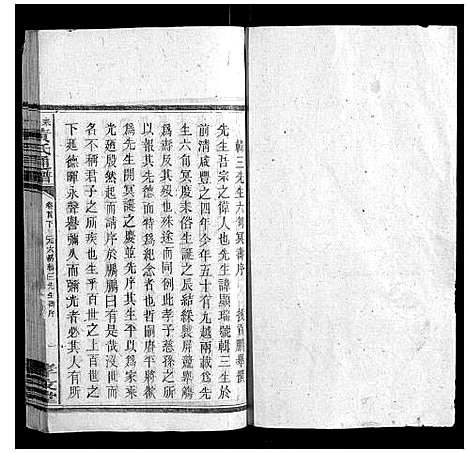 輯三先生六旬冥壽序
後學鵬舉撰
先生吾宗之偉人也先生諱顯瑞號輯三生於
前清咸豐之四年今年五十有九越兩載爲先
生六旬冥度末俗生誕之辰結綵肆筵畢觴
爲壽反棋也殊途而同例此孝子慈孫之所
以報其先德而特爲紀念者也哲嗣賡平將欲
爲先生開冥誕之慶並先序其生平以爲家乘
光廼殷然起而請序於鵬鵬曰有是哉沒世而
名不稱君子之所疾也生乎百世之上百世之
下延德暉永聲譽彌久而彌光者必其人有所
黃氏通譜
卷首下
先生壽序
一